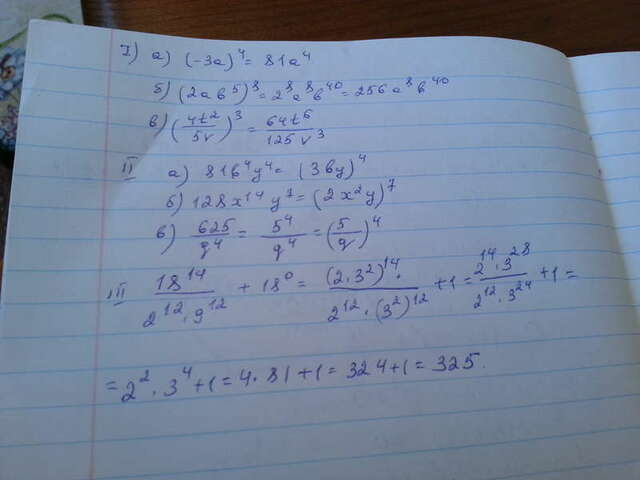 I) а) (-3a)⁴ = 81a⁴
б) (2ab⁵)⁸ = 2⁸a⁸b⁴⁰ = 256a⁸b⁴⁰
в) (4t²/5v)³ = 64t⁶/125v³
II а) 81b⁴y⁴ = (3by)⁴
б) 128x¹⁴y⁷ = (2x²y)⁷
в) 625/q⁴ = 5⁴/q⁴ = (5/q)⁴
III 18¹⁴/2¹²·9¹² + 18⁰ = (2·3²)¹⁴·/2¹²·(3²)¹² + 1 = 2¹⁴·3²⁸/2¹²·3²⁴ + 1 =
= 2²·3⁴ + 1 = 4·81 + 1 = 324 + 1 = 325.